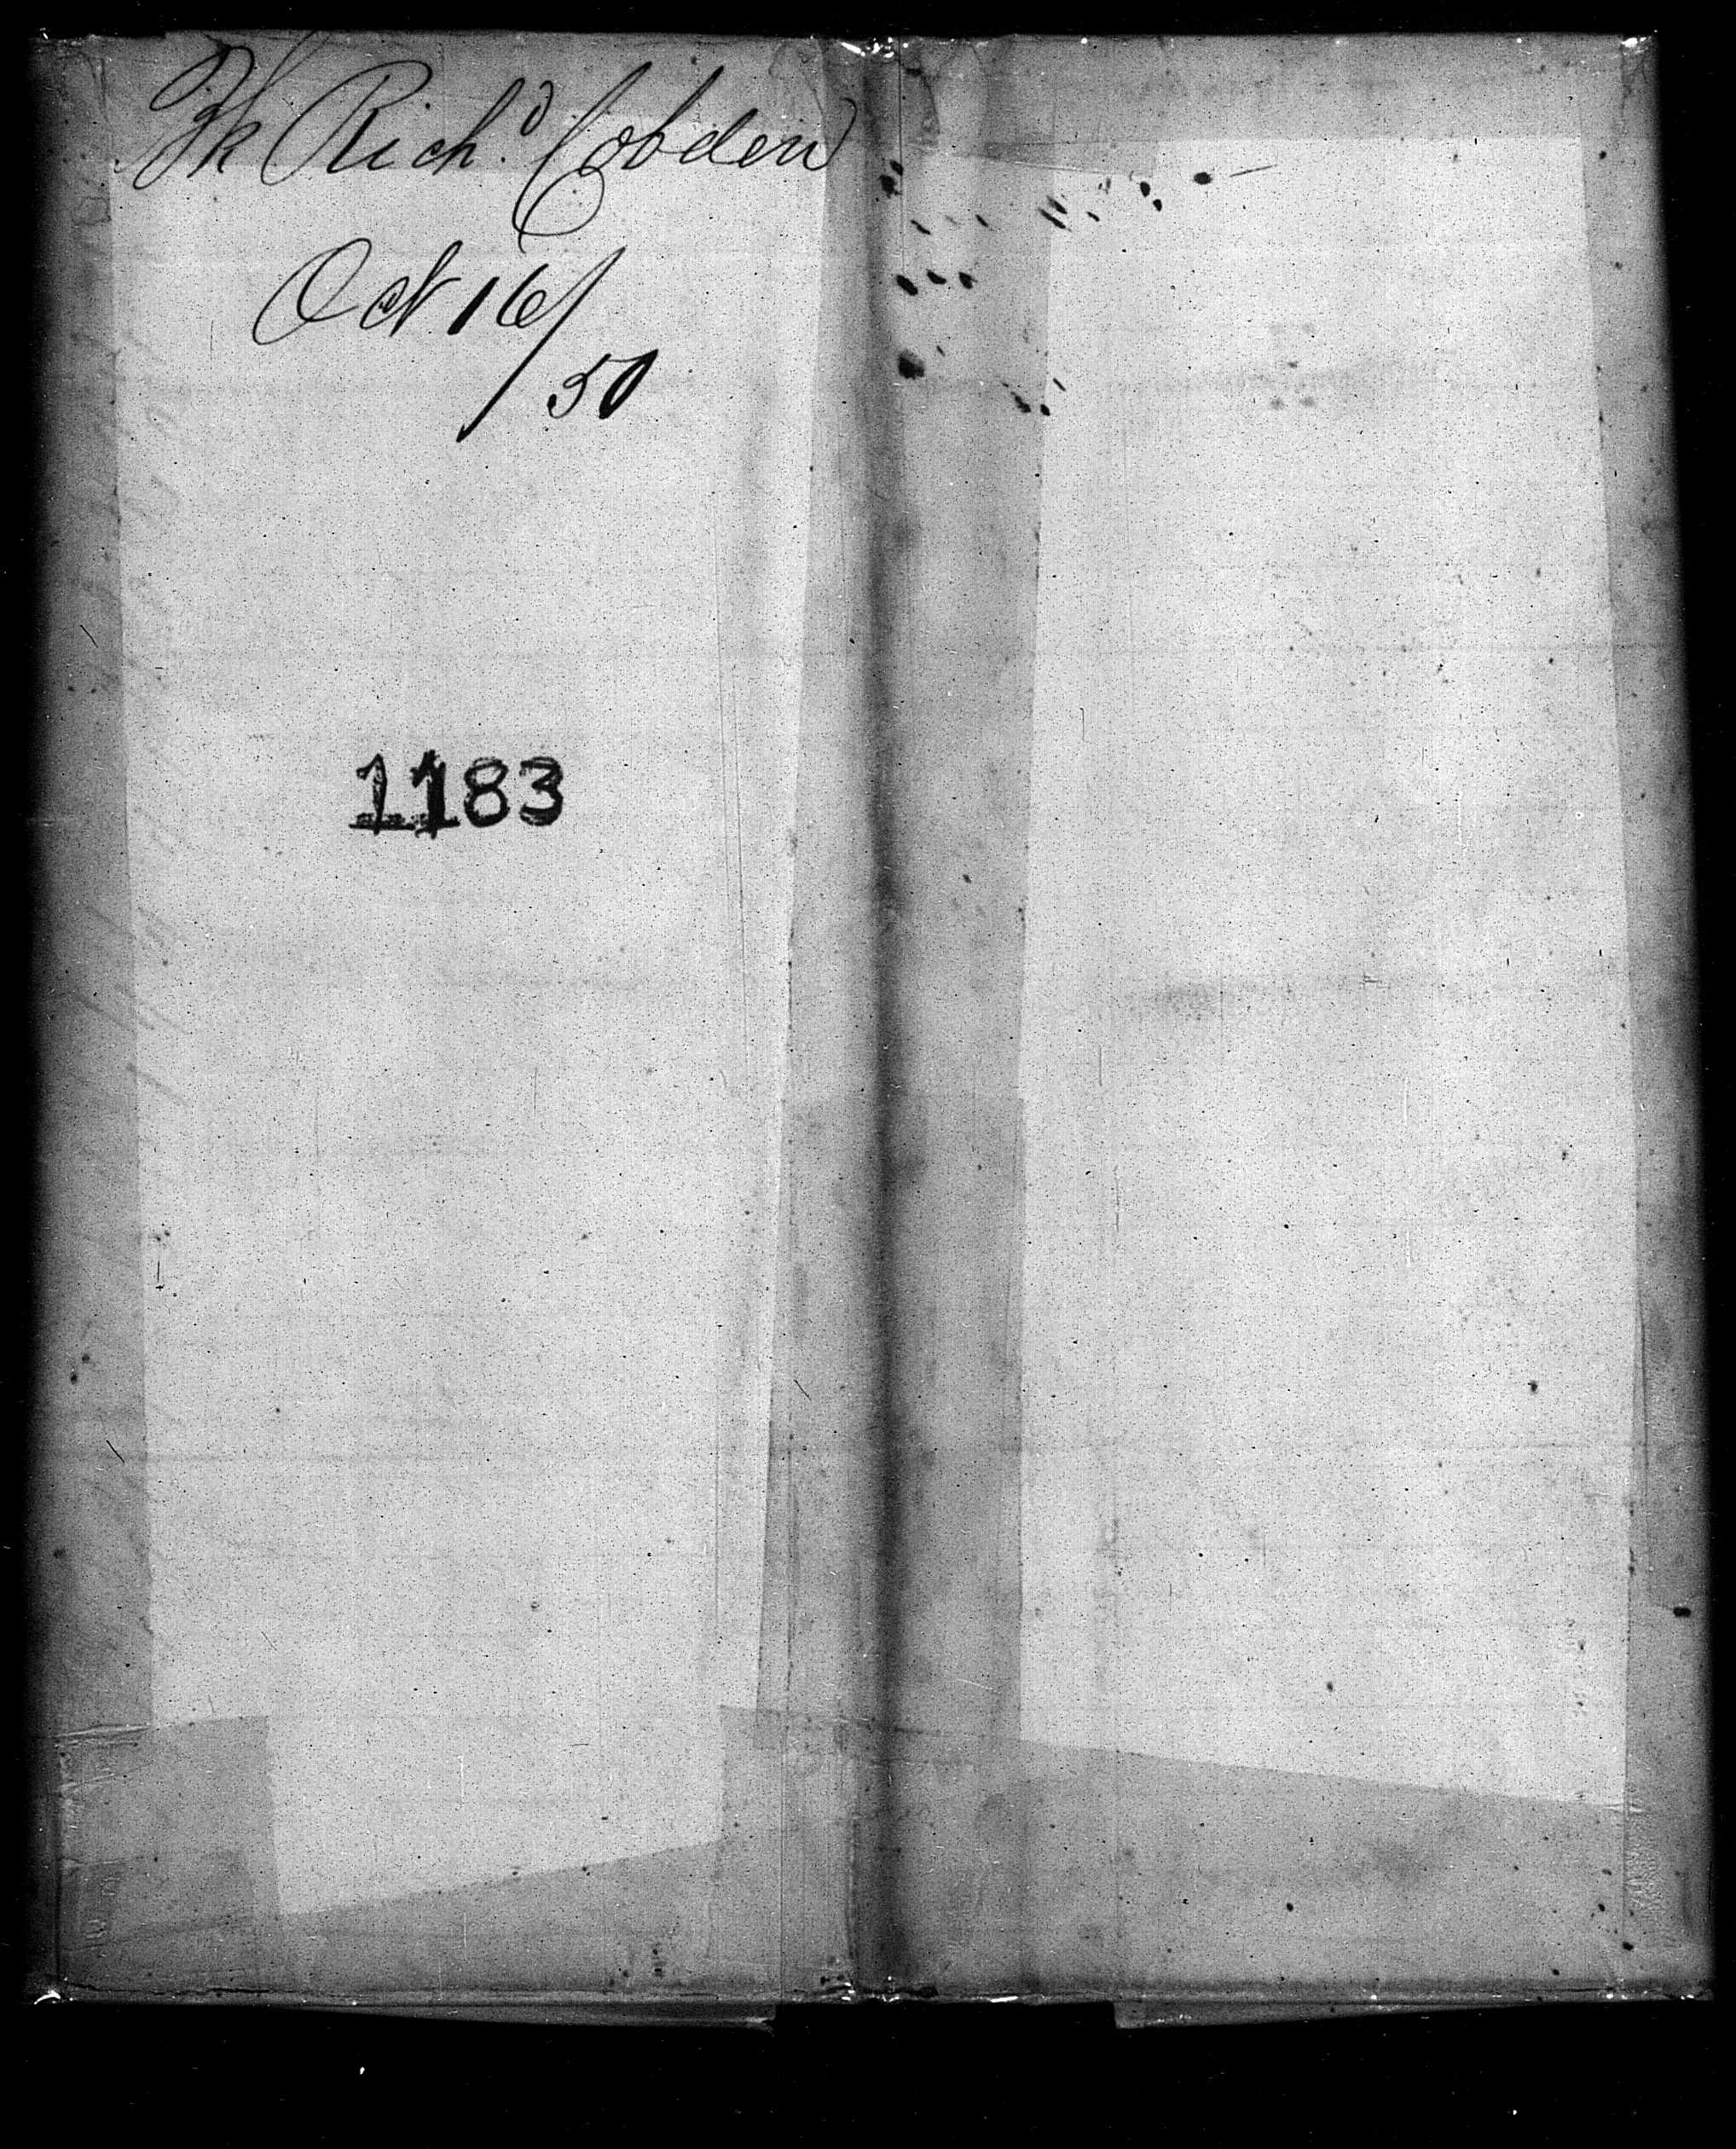 Bk Rich.d Cobden
Oct 16/
/50
1183